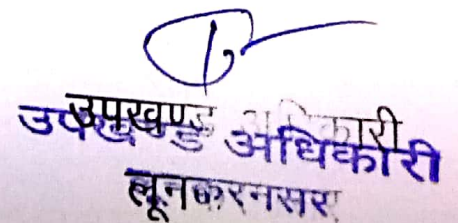 उपखण्ड अधिकारी
उपखण्ड अधिकारी
लूनकरनसर